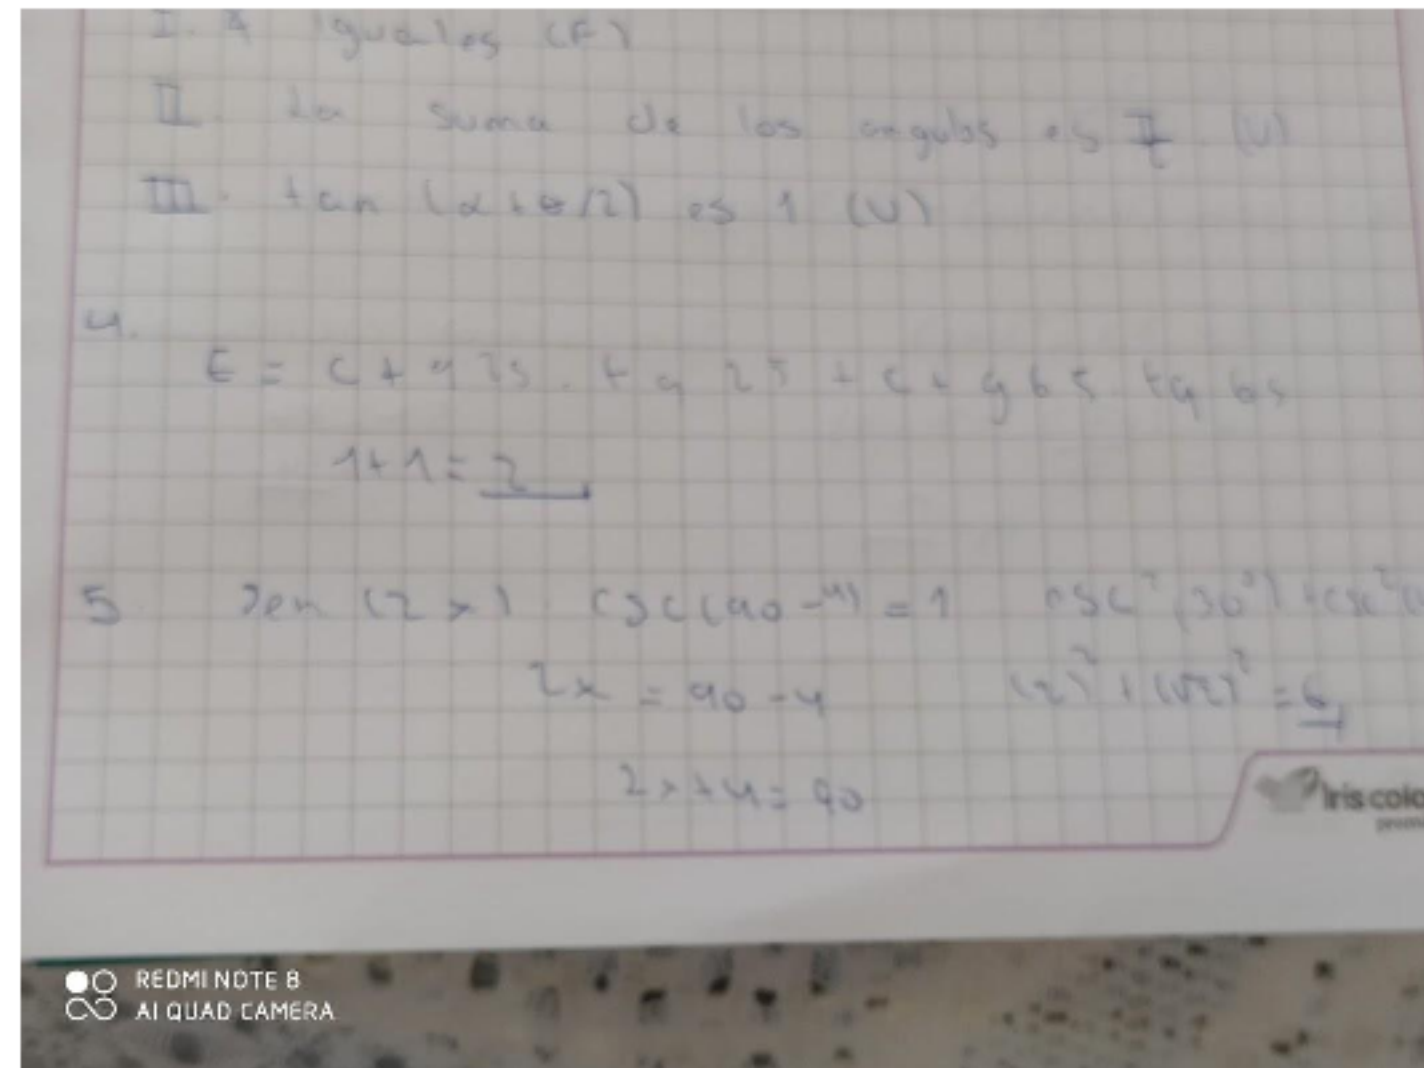 I. A iguales (F)
II. La suma de los angulos es π/2 (V)
III. tan (α+θ/2) es 1 (V)
4.
E = ctg 25 . tg 25 + ctg 65 tg 65
1+1 = 2
5 Sen (2x) csc(90-y) = 1 csc² (30°) + csc²
2x = 90 - y (2)² + (√2)² = 6
2x + y = 90
Iris colo
REDMI NOTE 8
AI QUAD CAMERA